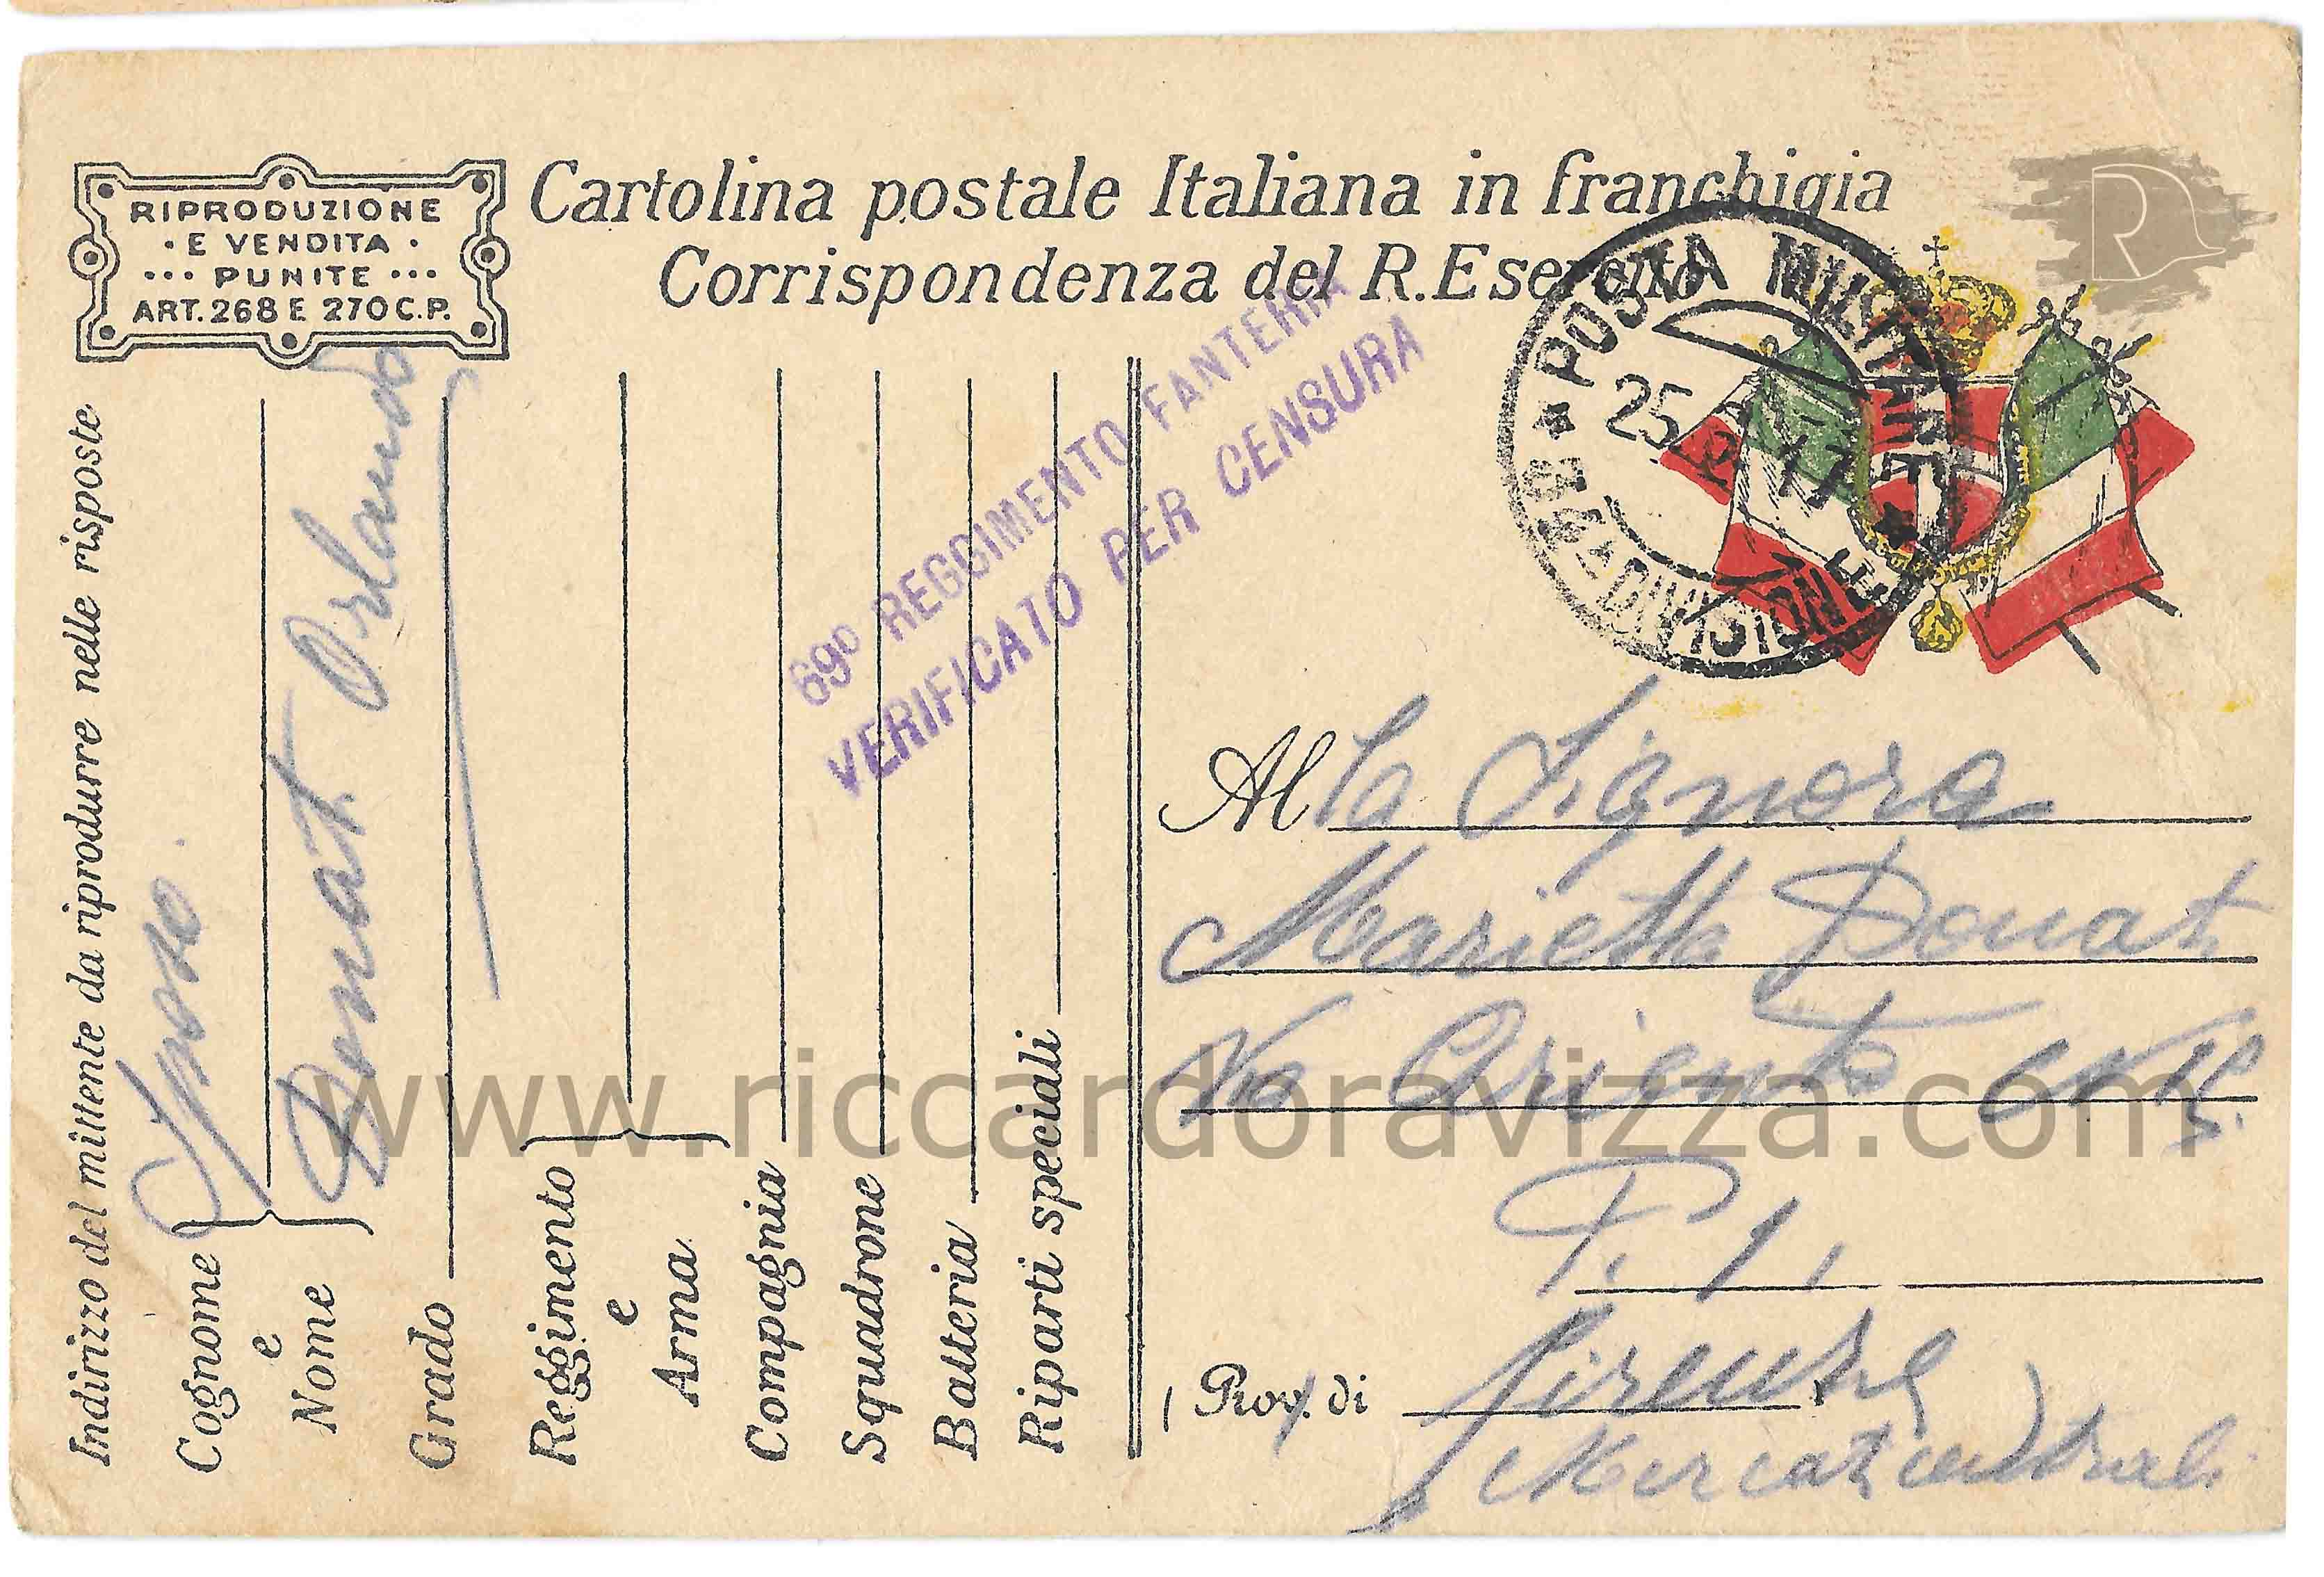 RIPRODUZIONE
· E VENDITA ·
··· PUNITE ···
ART. 268 E 270 C.P.
Cartolina postale Italiana in franchigia
Corrispondenza del R. Esercito
POSTA MILITARE
25 17
DIVISIONE
69º REGGIMENTO FANTERIA
VERIFICATO PER CENSURA
Indirizzo del mittente da riprodurre nelle risposte
Cognome e Nome
Sposo.
Donati Orlando
Grado
Reggimento e Arma
Compagnia
Squadrone
Batteria
Riparti speciali
Alla Signora
Marietta Donati
Via Oriento
P. 1.
Prov. di Firenze
Mercati centrali
www.riccardoravizza.com